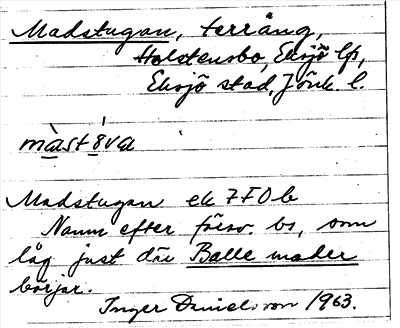 Madstugan, terräng,
Holstensbo, Eksjö lfs,
Eksjö stad, Jönk. l.
màst8́va
Madstugan ek 7F0b
Namn efter försv. bs, som
låg just där Balle mader
börjar.
Inger Danielsson 1963.